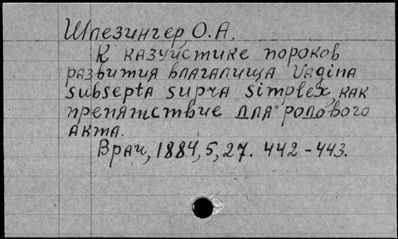 Шлезингер, О.А.
К казуистике пороков
развития влагалища Vagina
subsepta supra simplex как
препятствие для родового
акта.
Врач, 1884, 5, 27. 442-443.